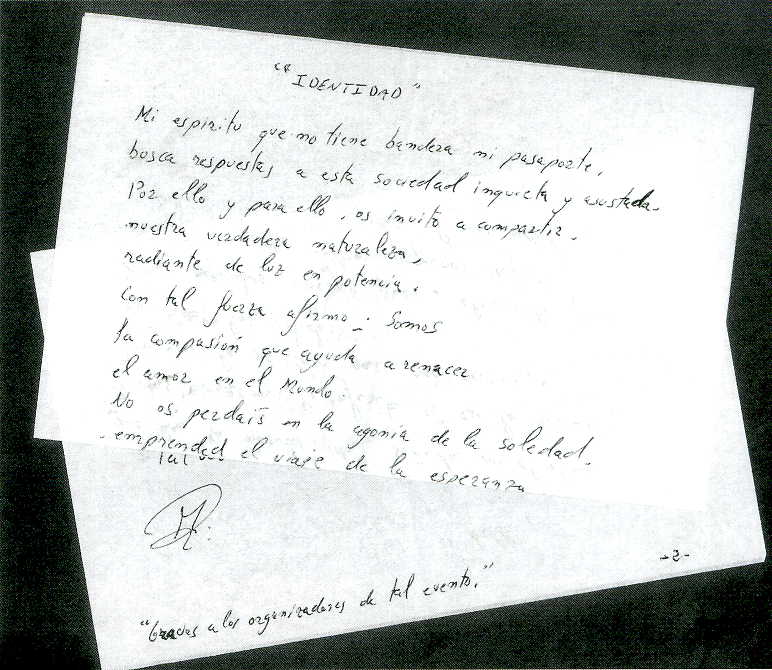 "IDENTIDAD"
Mi espiritu que no tiene bandera ni pasaporte,
busca respuestas a esta sociedad inquieta y asustada.
Por ello y para ello, os invito a compartir.
nuestra verdadera naturaleza,
radiante de luz en potencia.
Con tal fuerza afirmo: Somos
la compasión que ayuda a renacer
el amor en el Mundo.
No os perdais en la agonia de la soledad.
emprended el viaje de la esperanza
-2-
"Gracias a los organizadores de tal evento."